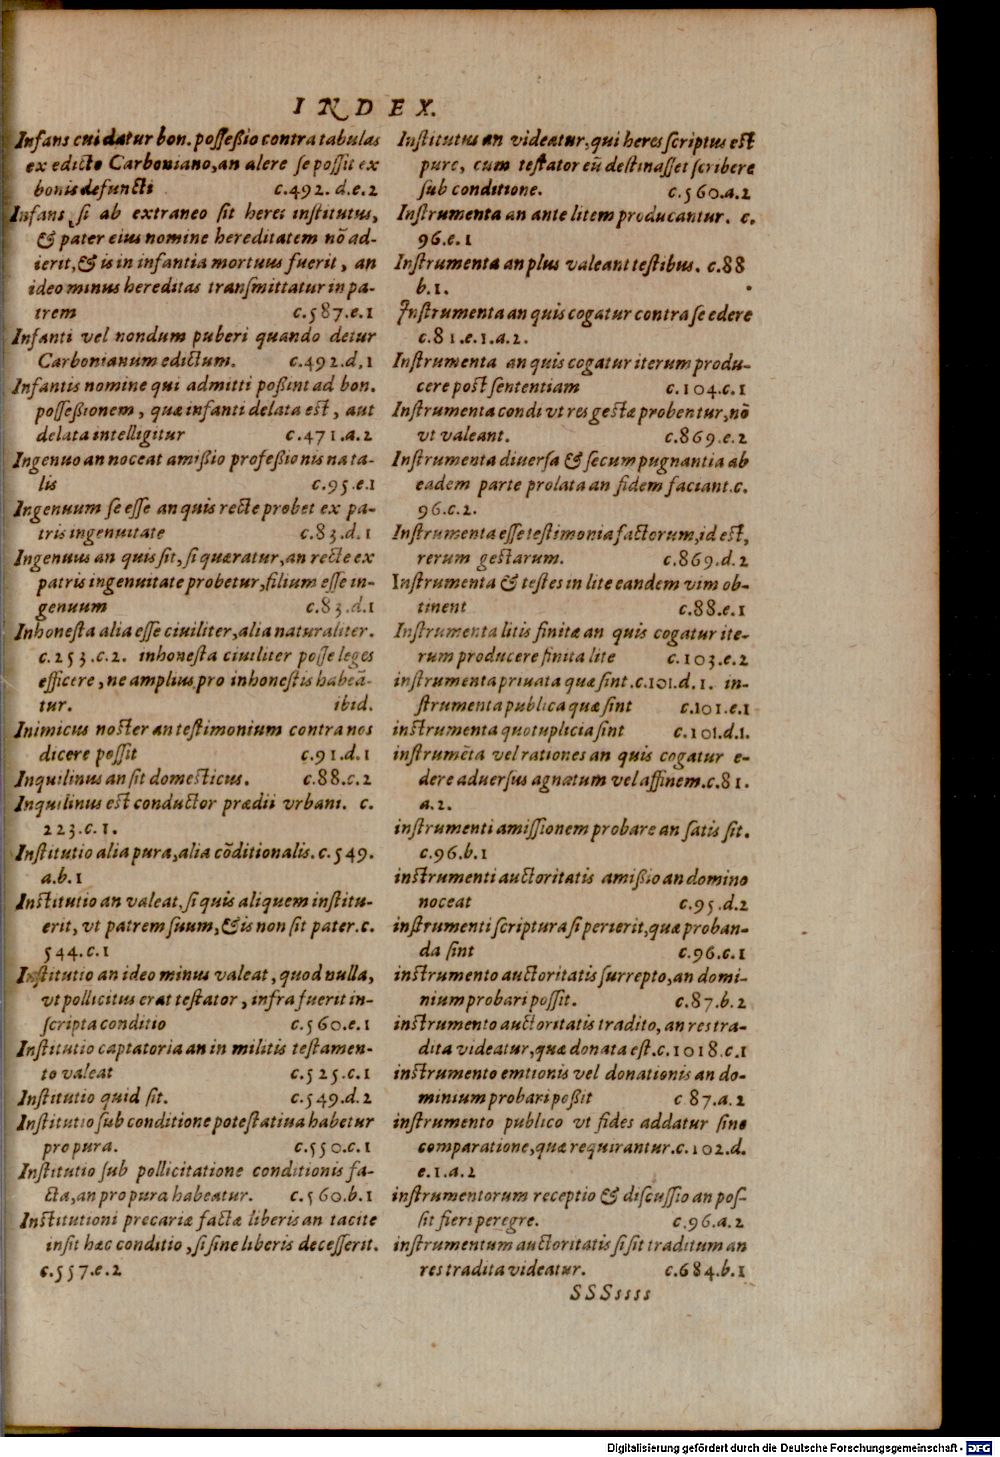 INDEX.
Infans cui datur bon. possessio contra tabulas
ex edicto Carboniano, an alere se possit ex
bonis defuncti c.492. d.e.2
Infans, si ab extraneo sit heres institutus,
& pater eius nomine hereditatem nō ad-
ierit, & is in infantia mortuus fuerit, an
ideo minus hereditas transmittatur in pa-
trem c.587.e.1
Infanti vel nondum puberi quando detur
Carbonianum edictum. c.492.d.1
Infantis nomine qui admitti possint ad bon.
possessionem, quæ infanti delata est, aut
delata intelligitur c.471.a.2
Ingenuo an noceat amissio professionis nata-
lis c.95.e.1
Ingenuum se esse an quis recte probet ex pa-
tris ingenuitate c.83.d.1
Ingenuus an quis sit, si quæratur, an recte ex
patris ingenuitate probetur, filium esse in-
genuum c.83.d.1
Inhonesta alia esse ciuiliter, alia naturaliter.
c.253.c.2. inhonesta ciuiliter posse leges
efficere, ne amplius pro inhonestis habeā-
tur. ibid.
Inimicus noster an testimonium contra nos
dicere possit c.91.d.1
Inquilinus an sit domesticus. c.88.c.2
Inquilinus est conductor prædii vrbani. c.
223.c.1.
Institutio alia pura, alia cōditionalis. c.549.
a.b.1
Institutio an valeat, si quis aliquem institu-
erit, vt patrem suum, & is non sit pater. c.
544.c.1
Institutio an ideo minus valeat, quod nulla,
vt pollicitus erat testator, infra fuerit in-
scripta conditio c.560.e.1
Institutio captatoria an in militis testamen-
to valeat c.525.c.1
Institutio quid sit. c.549.d.2
Institutio sub conditione potestatiua habetur
pro pura. c.550.c.1
Institutio sub pollicitatione conditionis fa-
cta, an pro pura habeatur. c.560.b.1
Institutioni precariæ factæ liberis an tacite
insit hæc conditio, si sine liberis decesserit.
c.557.e.2
Institutus an videatur, qui heres scriptus est
pure, cum testator eū destinasset scribere
sub conditione. c.560.a.2
Instrumenta an ante litem producantur. c.
96.e.1
Instrumenta an plus valeant testibus. c.88
b.1.
Instrumenta an quis cogatur contra se edere
c.81.e.1.a.2.
Instrumenta an quis cogatur iterum produ-
cere post sententiam c.104.c.1
Instrumenta condi vt res gestæ probentur, nō
vt valeant. c.869.e.2
Instrumenta diuersa & secum pugnantia ab
eadem parte prolata an fidem faciant. c.
96.c.2.
Instrumenta esse testimonia factorum, id est,
rerum gestarum. c.869.d.2
Instrumenta & testes in lite eandem vim ob-
tinent c.88.e.1
Instrumenta litis finitæ an quis cogatur ite-
rum producere finita lite c.103.e.2
instrumenta priuata quæ sint. c.101.d.1. in-
strumenta publica quæ sint c.101.e.1
instrumenta quotuplicia sint c.101.d.1.
instrumēta vel rationes an quis cogatur e-
dere aduersus agnatum vel affinem. c.81.
a.2.
instrumenti amissionem probare an satis sit.
c.96.b.1
instrumenti auctoritatis amissio an domino
noceat c.95.d.2
instrumenti scriptura si perierit, quæ proban-
da sint c.96.c.1
instrumento auctoritatis surrepto, an domi-
nium probari possit. c.87.b.2
instrumento auctoritatis tradito, an res tra-
dita videatur, quæ donata est. c.1018.c.1
instrumento emtionis vel donationis an do-
minium probari possit c 87.a.2
instrumento publico vt fides addatur sine
comparatione, quæ requirantur. c.102.d.
e.1.a.2
instrumentorum receptio & discussio an pos-
sit fieri peregre. c.96.a.2
instrumentum auctoritatis si sit traditum an
res tradita videatur. c.684.b.1
SSSssss
Digitalisierung gefördert durch die Deutsche Forschungsgemeinschaft - DFG